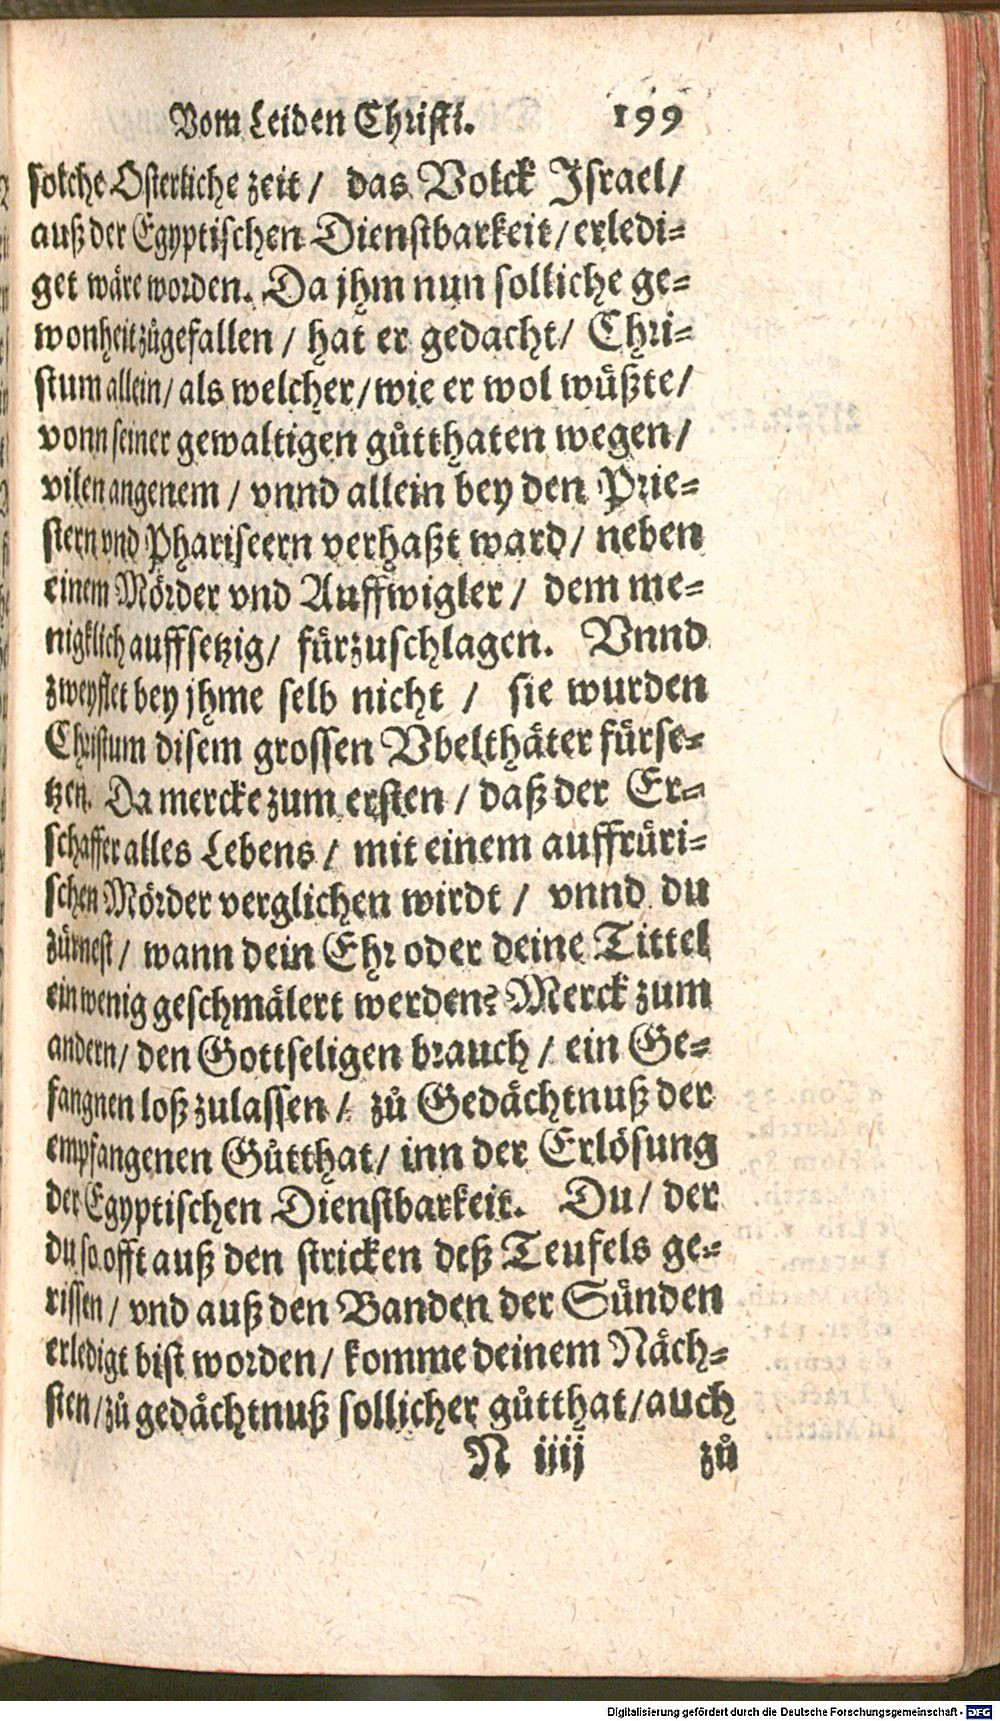 Vom Leiden Christi. 199
solche Osterliche zeit / das Volck Israel /
auß der Egyptischen Dienstbarkeit / erledi-
get wäre worden. Da jhm nun solliche ge-
wonheit zůgefallen / hat er gedacht / Chri-
stum allein / als welcher / wie er wol wüßte /
vonn seiner gewaltigen gůtthaten wegen /
vilen angenem / vnnd allein bey den Prie-
stern vnd Phariseern verhaßt ward / neben
einem Mörder vnd Auffwigler / dem me-
nigklich auffsetzig / fürzuschlagen. Vnnd
zweyflet bey jhme selb nicht / sie wurden
Christum disem grossen Vbelthäter fürse-
tzen. Da mercke zum ersten / daß der Er-
schaffer alles Lebens / mit einem auffrüri-
schen Mörder verglichen wirdt / vnnd du
zürnest / wann dein Ehr oder deine Tittel
ein wenig geschmälert werden? Merck zum
andern / den Gottseligen brauch / ein Ge-
fangnen loß zulassen / zů Gedächtnuß der
empfangenen Gůtthat / inn der Erlösung
der Egyptischen Dienstbarkeit. Du / der
du so offt auß den stricken deß Teufels ge-
rissen / vnd auß den Banden der Sünden
erledigt bist worden / komme deinem Näch-
sten / zů gedächtnuß sollicher gůtthat / auch
N iiij zů
Digitalisierung gefördert durch die Deutsche Forschungsgemeinschaft - DFG